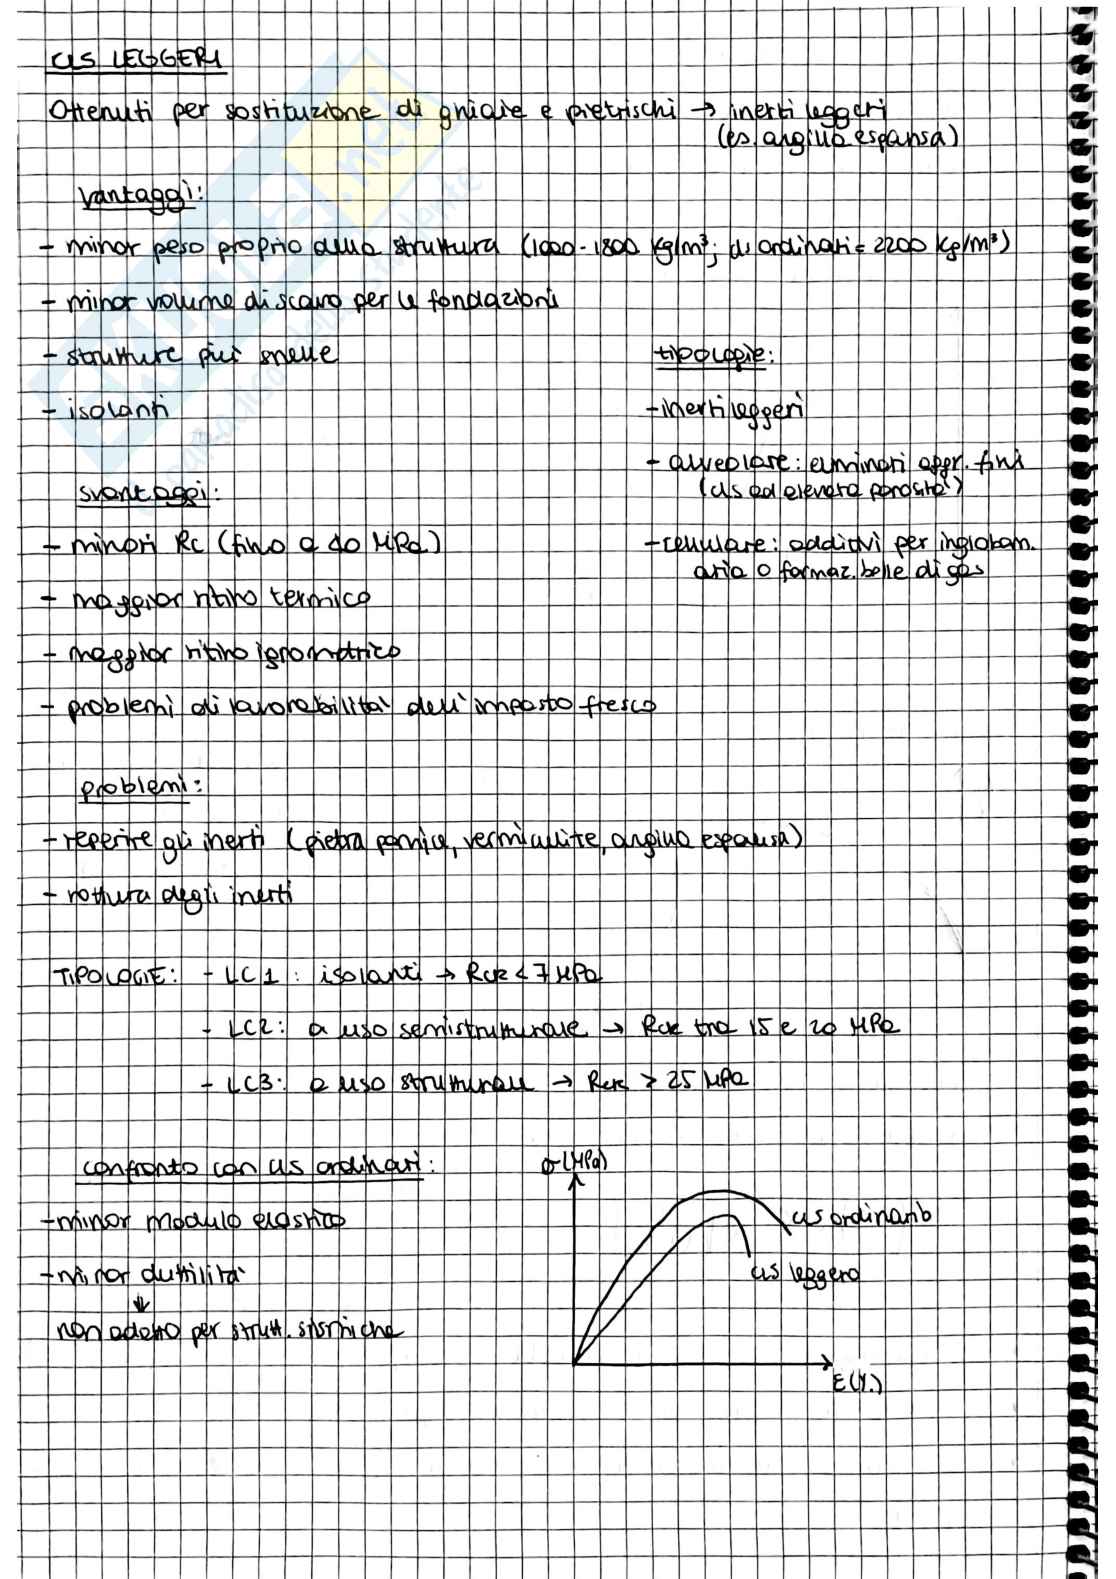 CLS LEGGERI
Ottenuti per sostituzione di ghiaie e pietrischi → inerti leggeri
(es. argilla espansa)
Vantaggi:
- minor peso proprio della struttura (1000-1800 kg/m³; cls ordinari = 2200 kg/m³)
- minor volume di scavo per le fondazioni
- strutture più snelle
- isolanti
tipologie:
- inerti leggeri
- alveolare: eliminari aggr. fini
(cls ad elevata porosità)
- cellulare: additivi per inglobam.
aria o formaz. bolle di gas
svantaggi:
- minori Rc (fino a 40 MPa)
- maggior ritiro termico
- maggior ritiro igrometrico
- problemi di lavorabilità dell'impasto fresco
problemi:
- reperire gli inerti (pietra pomice, vermiculite, argilla espansa)
- rottura degli inerti
TIPOLOGIE: - LC1: isolanti → Rck < 7 MPa
- LC2: a uso semistrutturale → Rck tra 15 e 20 MPa
- LC3: a uso strutturale → Rck > 25 MPa
confronto con cls ordinari:
- minor modulo elastico
- minor duttilità
↓
non adatto per strutt. sismiche
σ (MPa)
cls ordinario
cls leggero
ε (%)